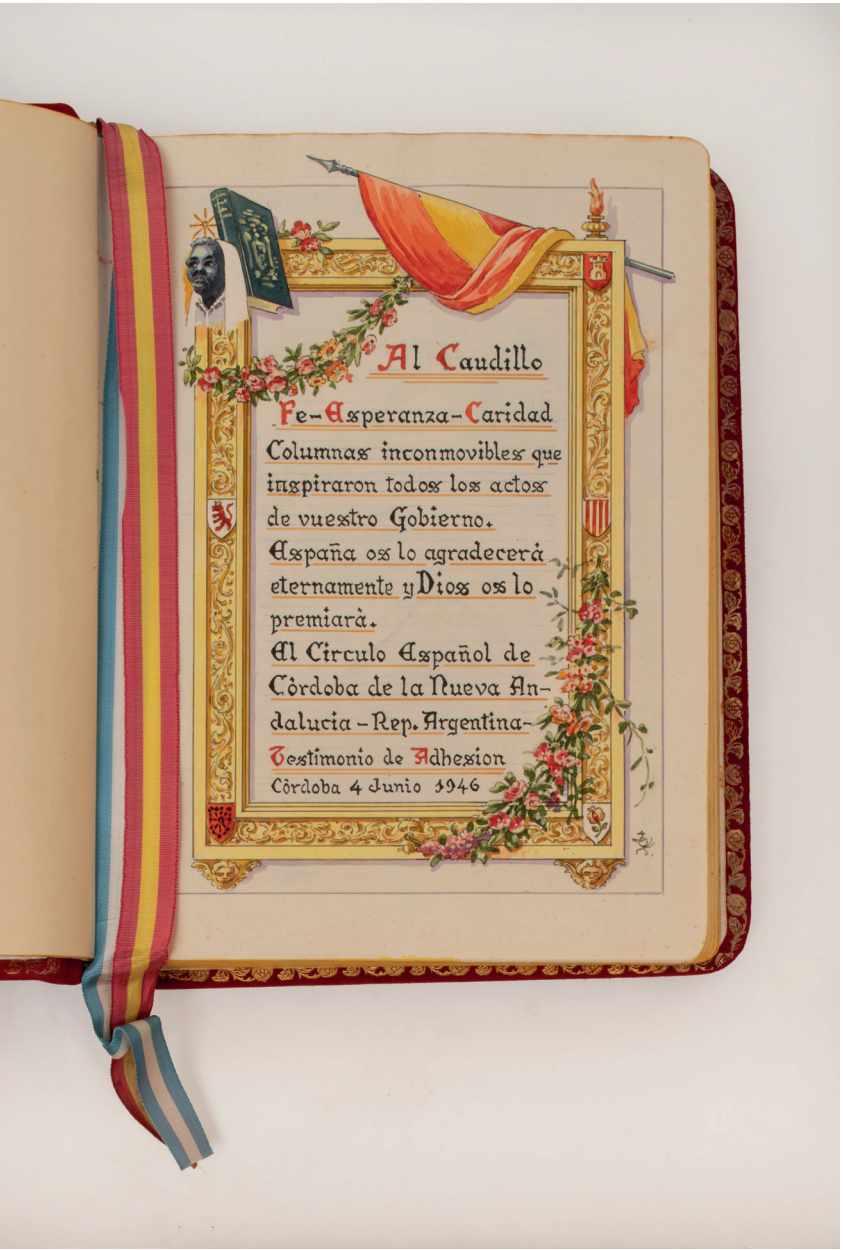 Al Caudillo
Fe-Esperanza-Caridad
Columnas inconmovibles que
inspiraron todos los actos
de vuestro Gobierno.
España os lo agradecerà
eternamente y Dios os lo
premiarà.
El Circulo Español de
Còrdoba de la Nueva An-
dalucia - Rep. Argentina-
Testimonio de Adhesion
Còrdoba 4 Junio 1946